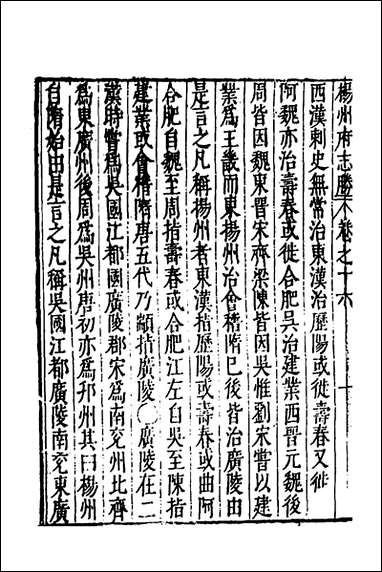 楊州府志勝八 卷之十六
西漢刺史無常治東漢治歷陽或徙壽春又徙
阿魏亦治壽春或徙合肥吳治建業西晉元魏後
周皆因魏東晉宋齊梁陳皆因吳惟劉宋嘗以建
業爲王畿而東揚州治會稽隋已後皆治廣陵由
是言之凡稱揚州者東漢指歷陽或壽春或曲阿
合肥自魏至周指壽春或合肥江左自吳至陳指
建業或會稽隋唐五代乃顓指廣陵○廣陵在二
漢時嘗爲吳國江都國廣陵郡宋爲南兗州比齊
爲東廣州後周爲吳州唐初亦爲邗州其曰楊州
自隋始由是言之凡稱吳國江都廣陵南兗東廣